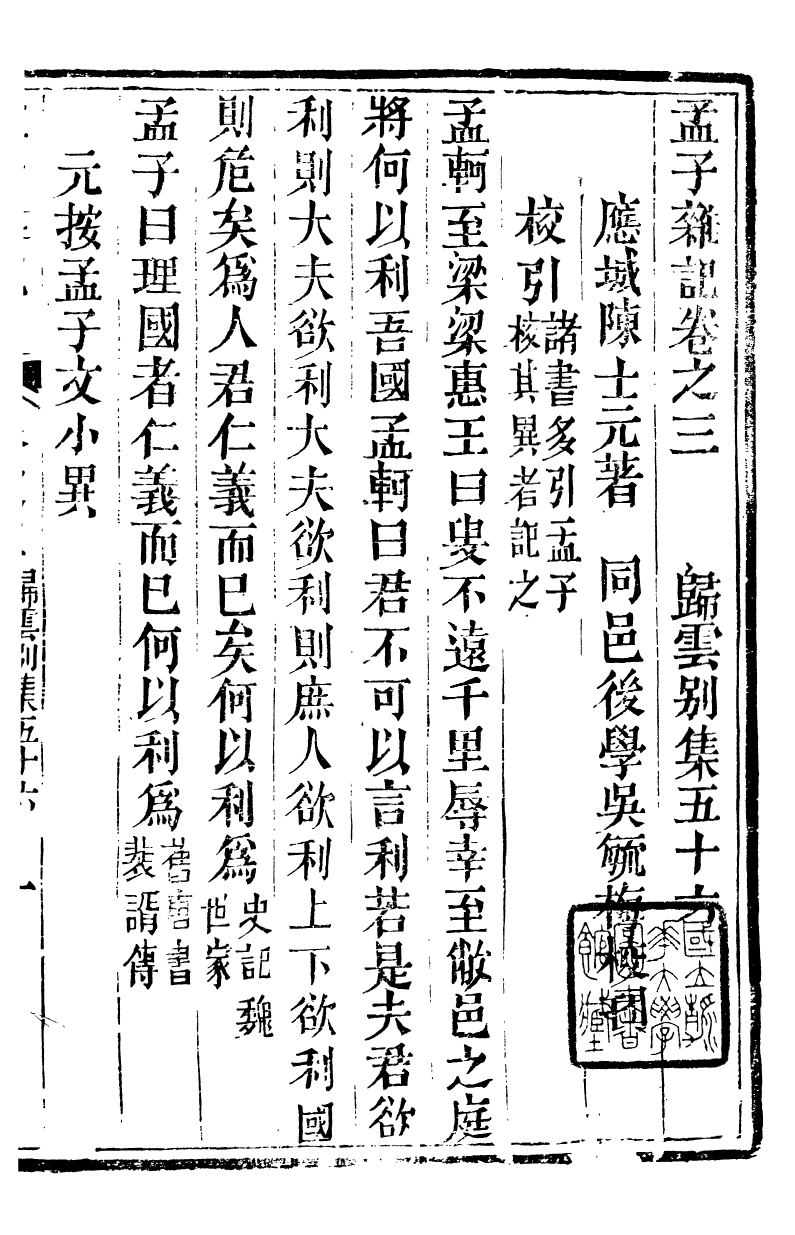 孟子雜記卷之三　歸雲別集五十六
應城陳士元著　同邑後學吳毓梅校刊
校引諸書多引孟子核其異者記之
孟軻至梁梁惠王曰叟不遠千里辱幸至敝邑之庭
將何以利吾國孟軻曰君不可以言利若是夫君欲
利則大夫欲利大夫欲利則庶人欲利上下欲利國
則危矣爲人君仁義而已矣何以利爲史記魏世家
孟子曰理國者仁義而已何以利爲舊唐書裴諝傳
元按孟子文小異
歸雲別集五十六　一